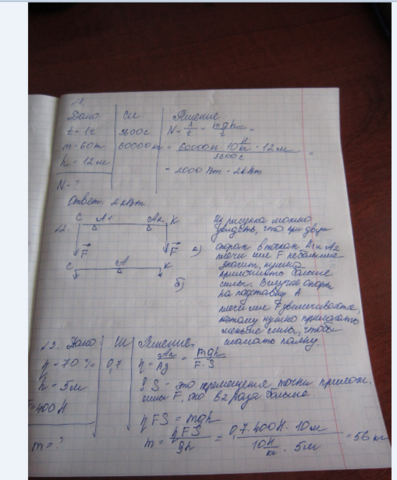 Дано СИ Решение
t = 1ч 3600с N = A/t = mgh/t =
m = 60т 60000кг = 60000кг · 10 Н/кг · 12м / 3600с =
h = 12м
= 2000 Вт = 2кВт
N - ?
Ответ: 2 кВт
12. C A1 A2 K
F F а)
C A K
б)
Из рисунка можно
увидеть, что при двух
опорах в точках A1 и A2
плечи силы F небольшие
значит, нужно
прикладывать большие
силы. В случае опоры
на подставку A
плечи силы F увеличиваются,
поэтому нужно прикладывать
меньшие силы, чтобы
сломать палку
13. Дано СИ Решение
η = 70% 0,7 η = Aп/Aз = mgh/F·S
h = 5м
F = 400Н
S - это перемещение точки прилож.
силы F, оно в 2 раза больше.
ηFS = mgh
m = ? m = ηFS/gh = 0,7 · 400Н · 10м / 10 Н/кг · 5м = 56 кг